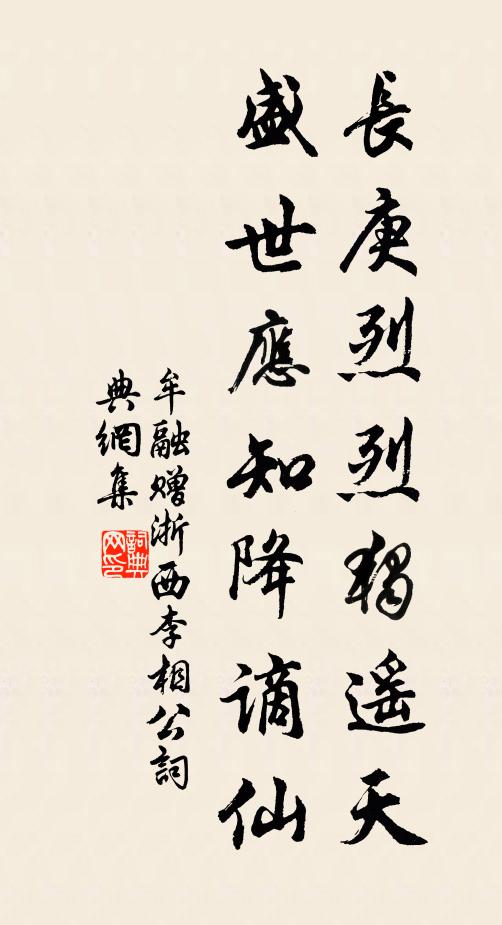 長庚烈烈獨遥天
盛世應知降謫仙
牟融赠浙西李相公詞
典網集
詞典
网印